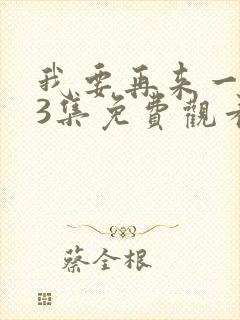 我要再来一
3集免費觀看
蔡全根